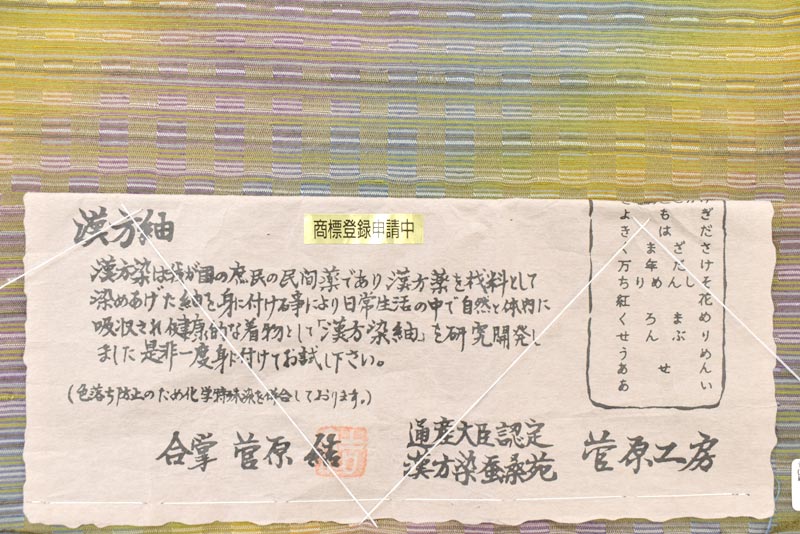 漢方紬
商標登録申請中
漢方染は我が国の庶民の民間薬であり漢方薬を材料として
染めあげた紬を身に付ける事により日常生活の中で自然と体内に
吸収され健康的な着物として「漢方染紬」を研究開発し
ました是非一度身に付けてお試し下さい。
(色落ち防止のため化学特殊液を併合しております。)
合掌 菅原
通産大臣認定
漢方染蚕桑苑
菅原工房
ぎださけそ花めりめんい
ざだん まぶ せ
はま年めし ろん
よきく万ち紅くせうああ